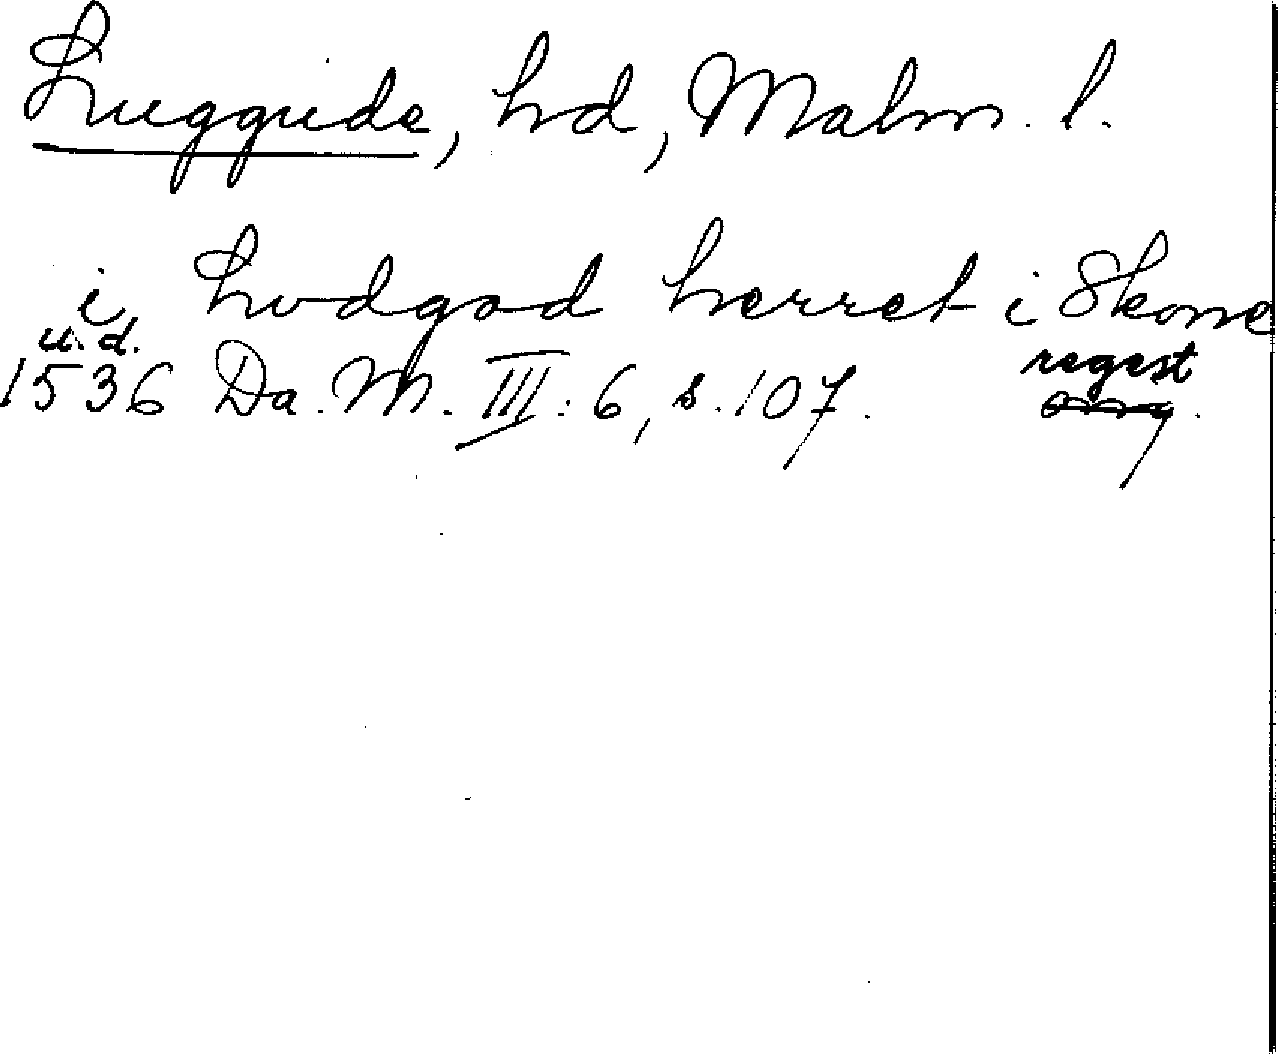 Luggude, hd, Malm. l.
i Lvdgod herret i Skone
u. d.
1536 Da. M. III: 6, s. 107. regest